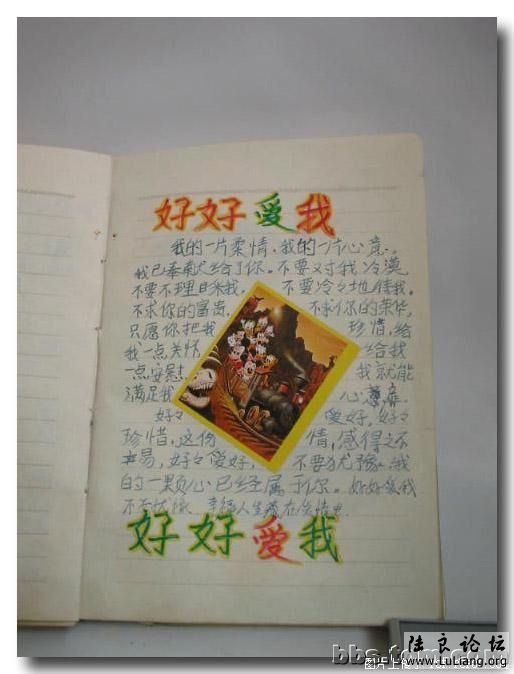 好好爱我
我的一片柔情、我的一片心意。
我已奉献给了你。不要对我冷漠
不要不理日采我。不要冷冷地待我。
不求你的富贵,不求你的荣华,
只愿你把我珍惜,给
我一点关怀给我
一点安慰。我就能
满足我心意
好好爱好,好好
珍惜,这份情,感得之不
易,好好爱好,不要犹豫。我
的一颗心已经属于你。好好爱我
不再忧愁 幸福人生藏在
好好爱我
陆良论坛
www.luliang.org
图片上传于